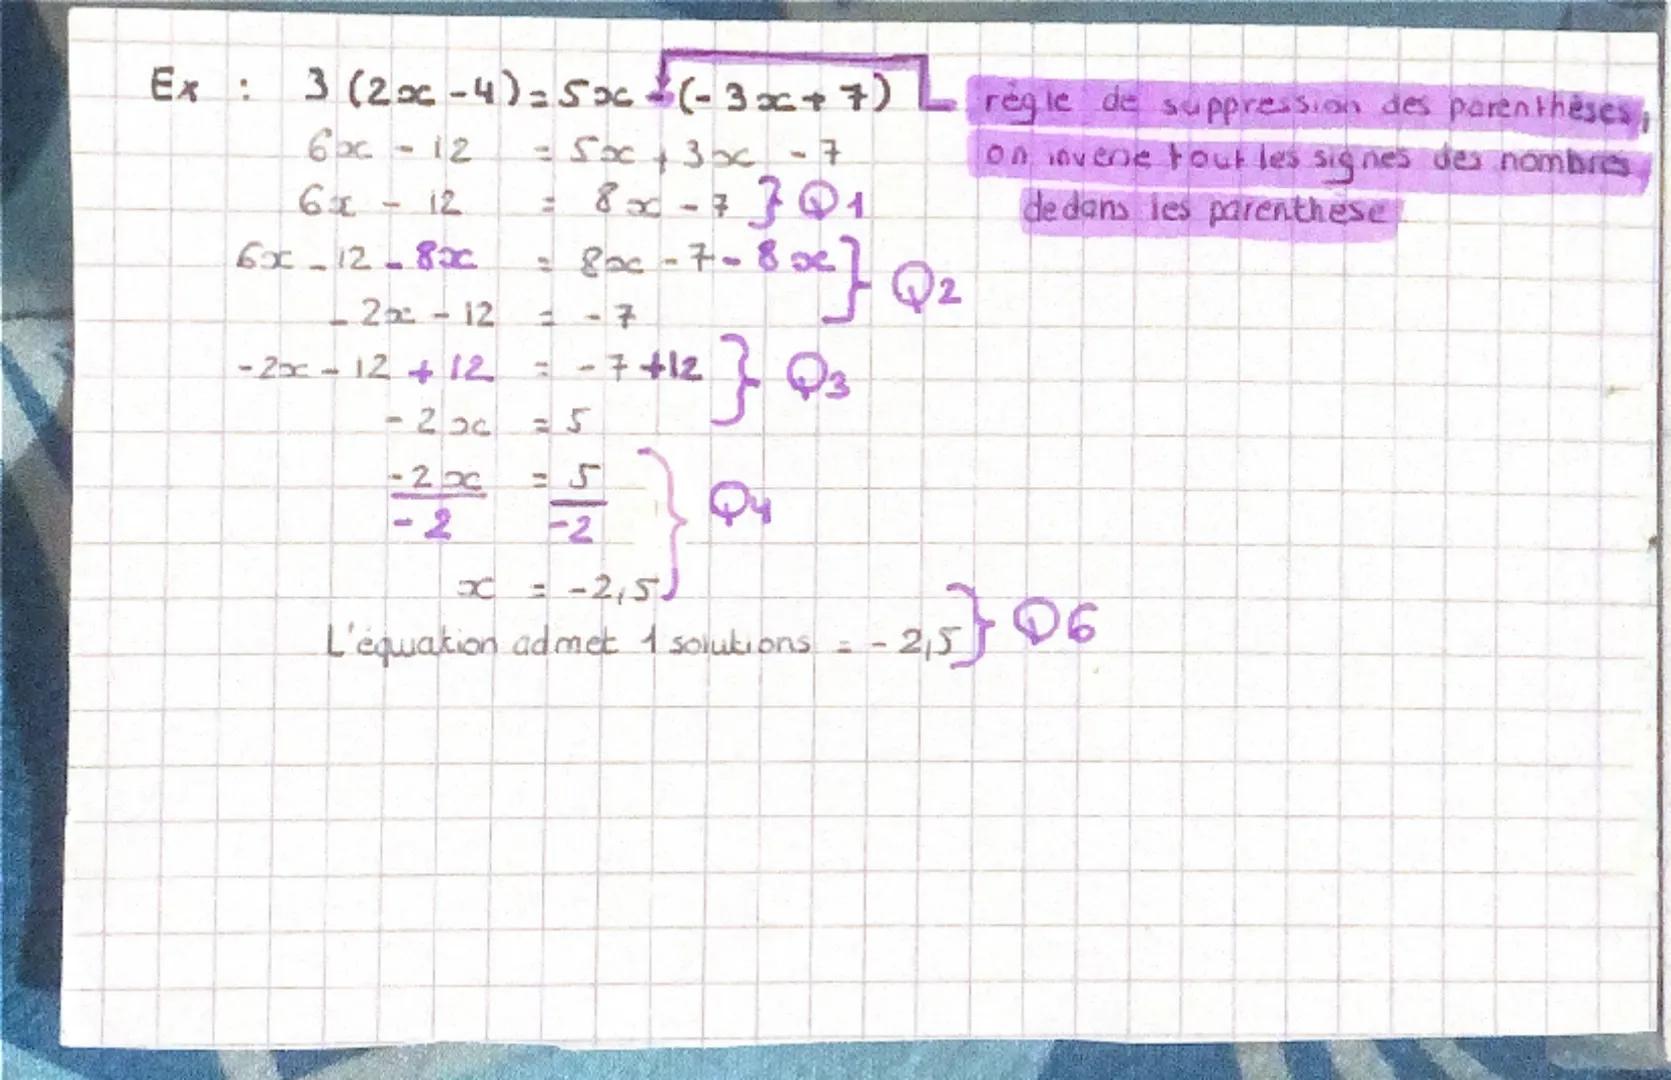 Ex : 3 (2x - 4) = 5x - (- 3x + 7)
règle de suppression des parenthèses,
on inverse tout les signes des nombres
dedans les parenthèse
6x - 12 = 5x + 3x - 7
6x - 12 = 8x - 7 } Q1
6x - 12 - 8x = 8x - 7 - 8x
- 2x - 12 = - 7 } Q2
-2x - 12 + 12 = - 7 + 12
- 2x = 5 } Q3
-2x/-2 = 5/-2 } Q4
x = -2,5
L'équation admet 1 solutions = - 2,5 } Q6